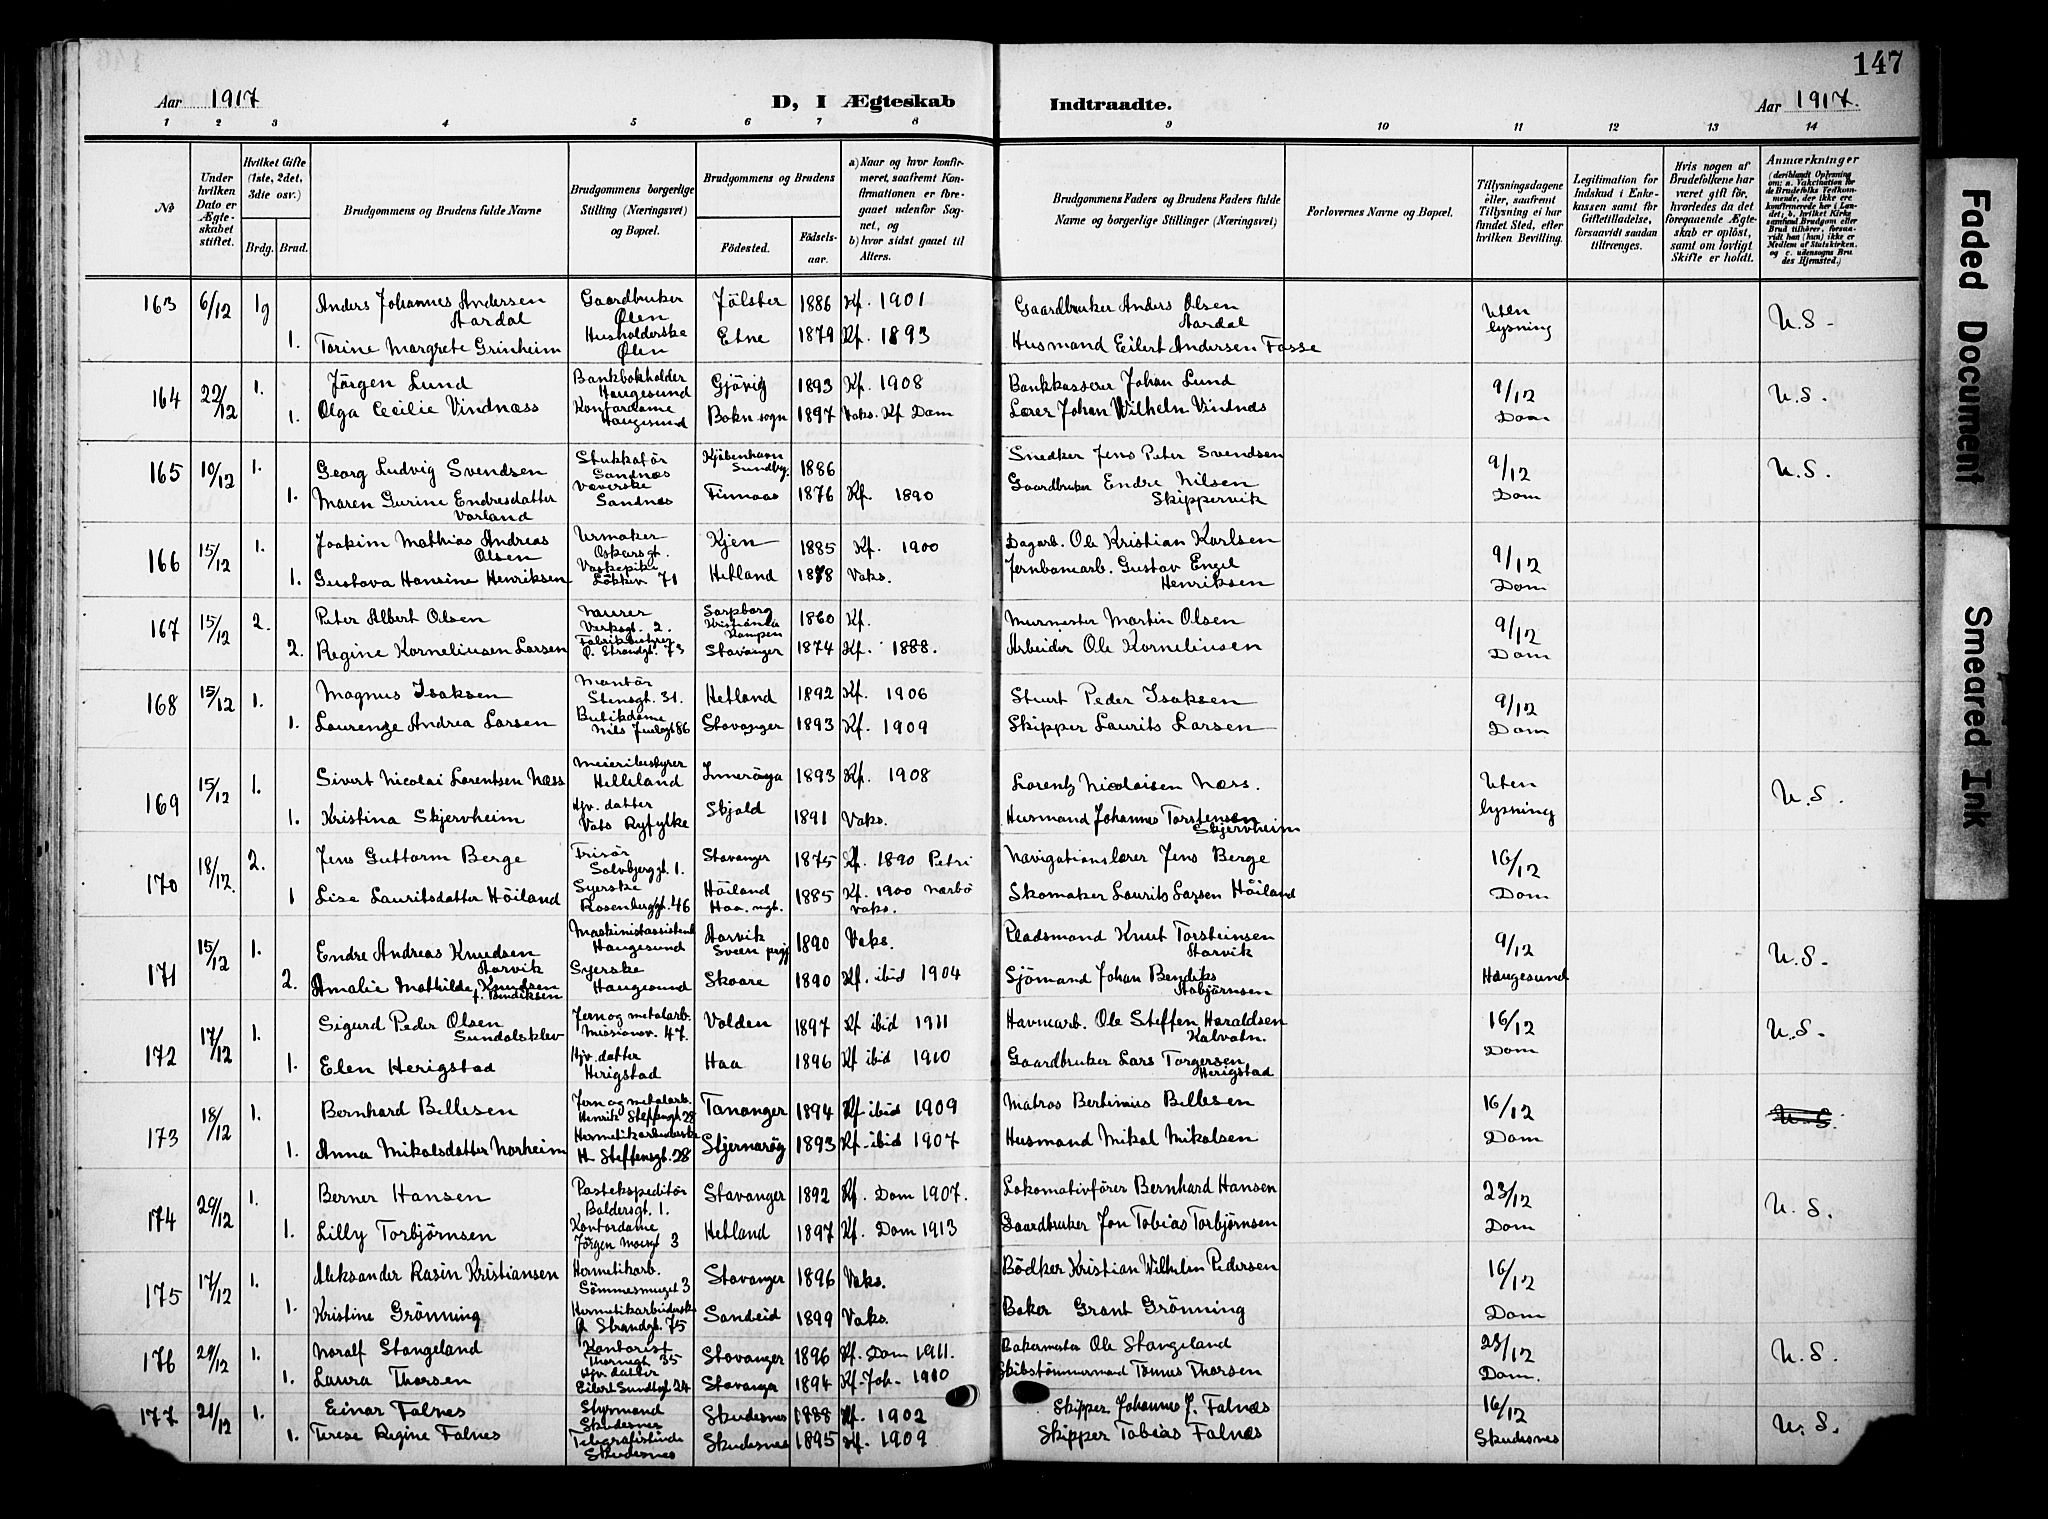 147
Aar 1917
D, I Ægteskab
Indtraadte.
Aar 1917.
1 2 3 4 5 6 7 8 9 10 11 12 13 14
№
Under hvilken Dato er Ægteskabet stiftet.
Hvilket Gifte (1ste, 2det, 3die osv.)
Brdg. Brud.
Brudgommens og Brudens fulde Navne
Brudgommens borgerlige Stilling (Næringsvei) og Bopæl.
Brudgommens og Brudens
Födested.
Födselsaar.
a) Naar og hvor konfirmeret, saafremt Konfirmationen er foregaaet udenfor Sognet, og
b) hvor sidst gaaet til Alters.
Brudgommens Faders og Brudens Faders fulde Navne og borgerlige Stillinger (Næringsvei)
Forlovernes Navne og Bopæl.
Tillysningsdagene eller, saafremt Tillysning ei har fundet Sted, efter hvilken Bevilling.
Legitimation for Indskud i Enkekassen samt for Giftetilladelse, forsaavidt saadan tiltrænges.
Hvis nogen af Brudefolkene har været gift för, hvorledes da det foregaaende Ægteskab er oplöst, samt om lovligt Skifte er holdt.
Anmærkninger (deriblandt Oplysning om: a. Vakcination for de Brudefolks Vedkommende, der ikke ere konfirmerede her i Landet; b. hvilket Kirkesamfund Brudgom eller Brud tilhörer, forsaavidt han (hun) ikke er Medlem af Statskirken, og c. udensogns Brudes Hjemsted.)
163 6/12 1g Anders Johannes Andersen Aardal Gaardbruker Ølen Jölster 1886 Kf. 1901 Gaardbruker Anders Olsen Aardal Uten lysning U.S.
1. Torine Margrete Grinheim Husholderske Ølen Etne 1879 Kf. 1893 Husmand Eilert Andersen Fosse
164 22/12 1. Jörgen Lund Bankbokholder Haugesund Gjövig 1893 Kf. 1908 Bankkasserer Johan Lund 9/12 Dom U.S.
1. Olga Cecilie Vindnæss Kontordame Haugesund Bokn sogn 1897 Vaks. Kf Dom Lærer Johan Wilhelm Vindnæs
165 10/12 1. Georg Ludvig Svendsen Stukkatör Sandnæs Kjöbenhavn Sundby. 1886 Snedker Jens Peter Svendsen 9/12 Dom U.S.
1. Maren Gurine Endresdatter Vorland Væverske Sandnæs Finnaas 1876 Kf. 1890 Gaardbruker Endre Nilsen Skippervik
166 15/12 1. Joakim Mathias Andreas Olsen Urmaker Oskarsgt. Kjen 1885 Kf. 1900 Dagarb. Ole Kristian Karlsen 9/12 Dom
1. Gustava Hansine Henriksen Vaskepike Lökkev 71 Hetland 1878 Vaks. Jernbanearb. Gustav Engel Henriksen
167 15/12 2. Peter Albert Olsen Murer Verksgt. 2. Sarpborg Kristiania Kampen 1860 Kf. Murmester Martin Olsen 9/12 Dom
2. Regine Korneliusen Larsen Ö. Strandgt. 73 Stavanger 1874 Kf. 1888. Arbeider Ole Korneliusen
168 15/12 1. Magnus Isaksen Montör Stensgt. 31. Hetland 1892 Kf. 1906 Stuert Peder Isaksen 9/12 Dom
1. Laurenze Andrea Larsen Butikdame Nils Juelsgt 86 Stavanger 1893 Kf. 1909 Skipper Laurits Larsen
169 15/12 1. Sivert Nicolai Lorentsen Næss Meieribestyrer Helleland Inneröya 1893 Kf. 1908 Lorentz Nicolaisen Næss. Uten lysning U.S.
1. Kristina Skjervheim Hjv. datter Vats Ryfylke Skjold 1891 Vaks. Husmand Johannes Torstensen Skjervheim
170 18/12. 2. Jens Guttorm Berge Frisör Solvbjerggt. 1. Stavanger 1875 Kf. 1890 Petri Navigationslærer Jens Berge 16/12 Dom
1 Lise Lauritsdatter Höiland Syerske Rosenberggt. 46 Höiland Haa. 1885 Kf. 1900 Nærbö Vaks. Skomaker Laurits Larsen Höiland
171 15/12 1. Endre Andreas Knudsen Aarvik Maskinistassistent Haugesund Aarvik Sveen 1890 Vaks. Pladsmand Knut Torsteinsen Aarvik 9/12 Haugesund U.S.
2. Amalie Mathilde Knudsen f. Bendiksen Syerske Haugesund Skaare 1890 Kf. ibid 1904 Sjömand Johan Bendiks Asbjörnsen
172 17/12 1. Sigurd Peder Olsen Sundalsklev Jern og metalarb. Missionsv. 47. Valden 1897 Kf ibid 1911 Havnearb. Ole Steffen Haraldsen Kalvatn. 16/12 Dom U.S.
1. Elen Herigstad Hjv. datter Herigstad Haa 1896 Kf ibid 1910 Gaardbruker Lars Torgersen Herigstad
173 18/12 1. Bernhard Bellesen Jern og metalarb. Henrik Steffensgt 28 Tananger 1894 Kf. ibid 1909 Matros Bertinius Bellesen 16/12 Dom U.S.
1. Anna Mikalsdatter Norheim Hermetikarbeiderske H. Steffensgt. 28 Stjernaröy 1893 Kf. ibid 1907 Husmand Mikal Mikalsen
174 29/12 1. Berner Hansen Postekspeditör Baldersgt. 1. Stavanger 1892 Kf. Dom 1907. Lokomativförer Bernhard Hansen 23/12 Dom U.S.
1. Lilly Torbjörnsen Kontordame Jörgen Moesgt 3 Hetland 1897 Kf. Dom 1913 Gaardbruker Jon Tobias Torbjörnsen
175 17/12 1. Aleksander Rasin Kristiansen Hermetikarb. Sömmesmuget 3 Stavanger 1896 Vaks. Bödker Kristian Wilhelm Pedersen 16/12 Dom
1. Kristine Grönning Hermetikarbeiderske Ö Strandgt. 75 Sandeid 1899 Vaks. Baker Grant Grönning
176 29/12 1. Noralf Stangeland Kontorist Thornegt 35 Stavanger 1896 Kf. Dom 1911. Bakermester Ole Stangeland 23/12 Dom. U.S.
1. Laura Thorsen Hjv. datter Eilert Sundtsgt 24 Stavanger 1894 Kf. Joh. 1910 Skibstömmermand Tönnes Thorsen
177 21/12 1. Einar Falnes Styrmand Skudesnes Skudesnes 1888 Kf. 1902 Skipper Johannes J. Falnæs 16/12 Skudesnes U.S.
1. Terese Regine Falnes Telegrafistinde Skudesnes Skudesnes 1895 Kf. 1909 Skipper Tobias Falnæs
Faded Document
Smeared Ink